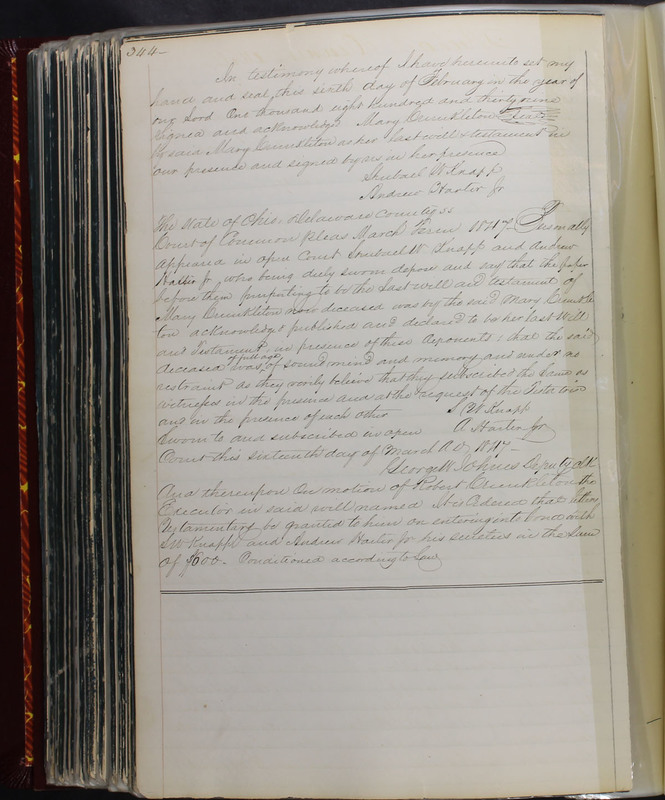 344-
In testimony whereof I have hereunto set my
hand and seal this sixth day of February in the year of
our Lord One thousand eight hundred and thirty nine
signed and acknowledged Mary Crinkleton Seal
by said Mary Crinkleton as her last will & testament in
our presence and signed by us in her presence
Shubael W Knapp
Andrew Harter Jr
The State of Ohio, Delaware County ss
Court of Common Pleas March Term 1847- Personally
appeared in open Court Shubael W. Knapp and Andrew
Harter Jr who being duly sworn depose and say that the paper
before them purporting to be the last will and testament of
Mary Crunkleton now deceased was by the said Mary Crunkle
ton acknowledged published and declared to be her last Will
and Testament in presence of these deponents; that the said
deceased was of full age of sound mind and memory and under no
restraint as they verily believe that they subscribed the same as
witnesses in the presence and at the request of the Testatrix
and in the presence of each other S W Knapp
Sworn to and subscribed in open A Harter Jr
Court this sixteenth day of March A D, 1847-
George W. Jones Deputy Clk
And thereupon On motion of Robert Crunkleton the
Executor in said will named It is Ordered that letters
Testamentary be granted to him on entering into bond with
S W Knapp and Andrew Harter Jr his sureties in the Sum
of $600- Conditioned according to Law